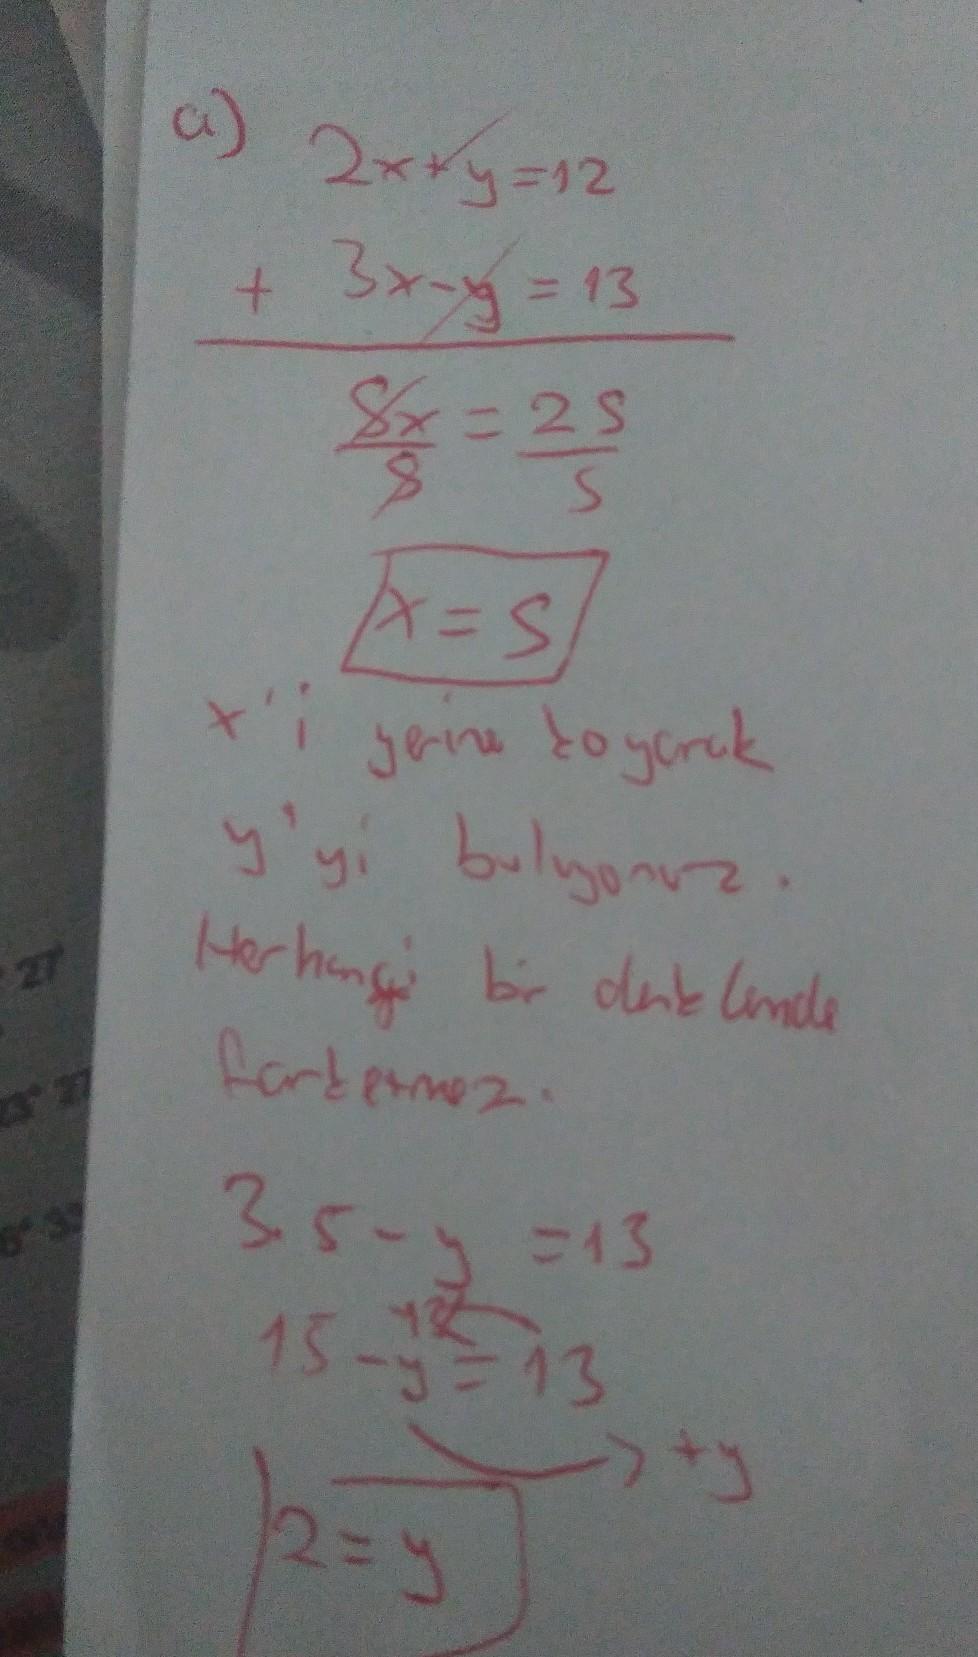 a)
2x+y=12
+ 3x-y=13
5x = 25
5 5
x=5
x'i yerine koyarak
y'yi bulyoruz.
Herhangi bir denklemde
farketmez.
3.5-y =13
15-y=13
+y
2=y
27
23° 27